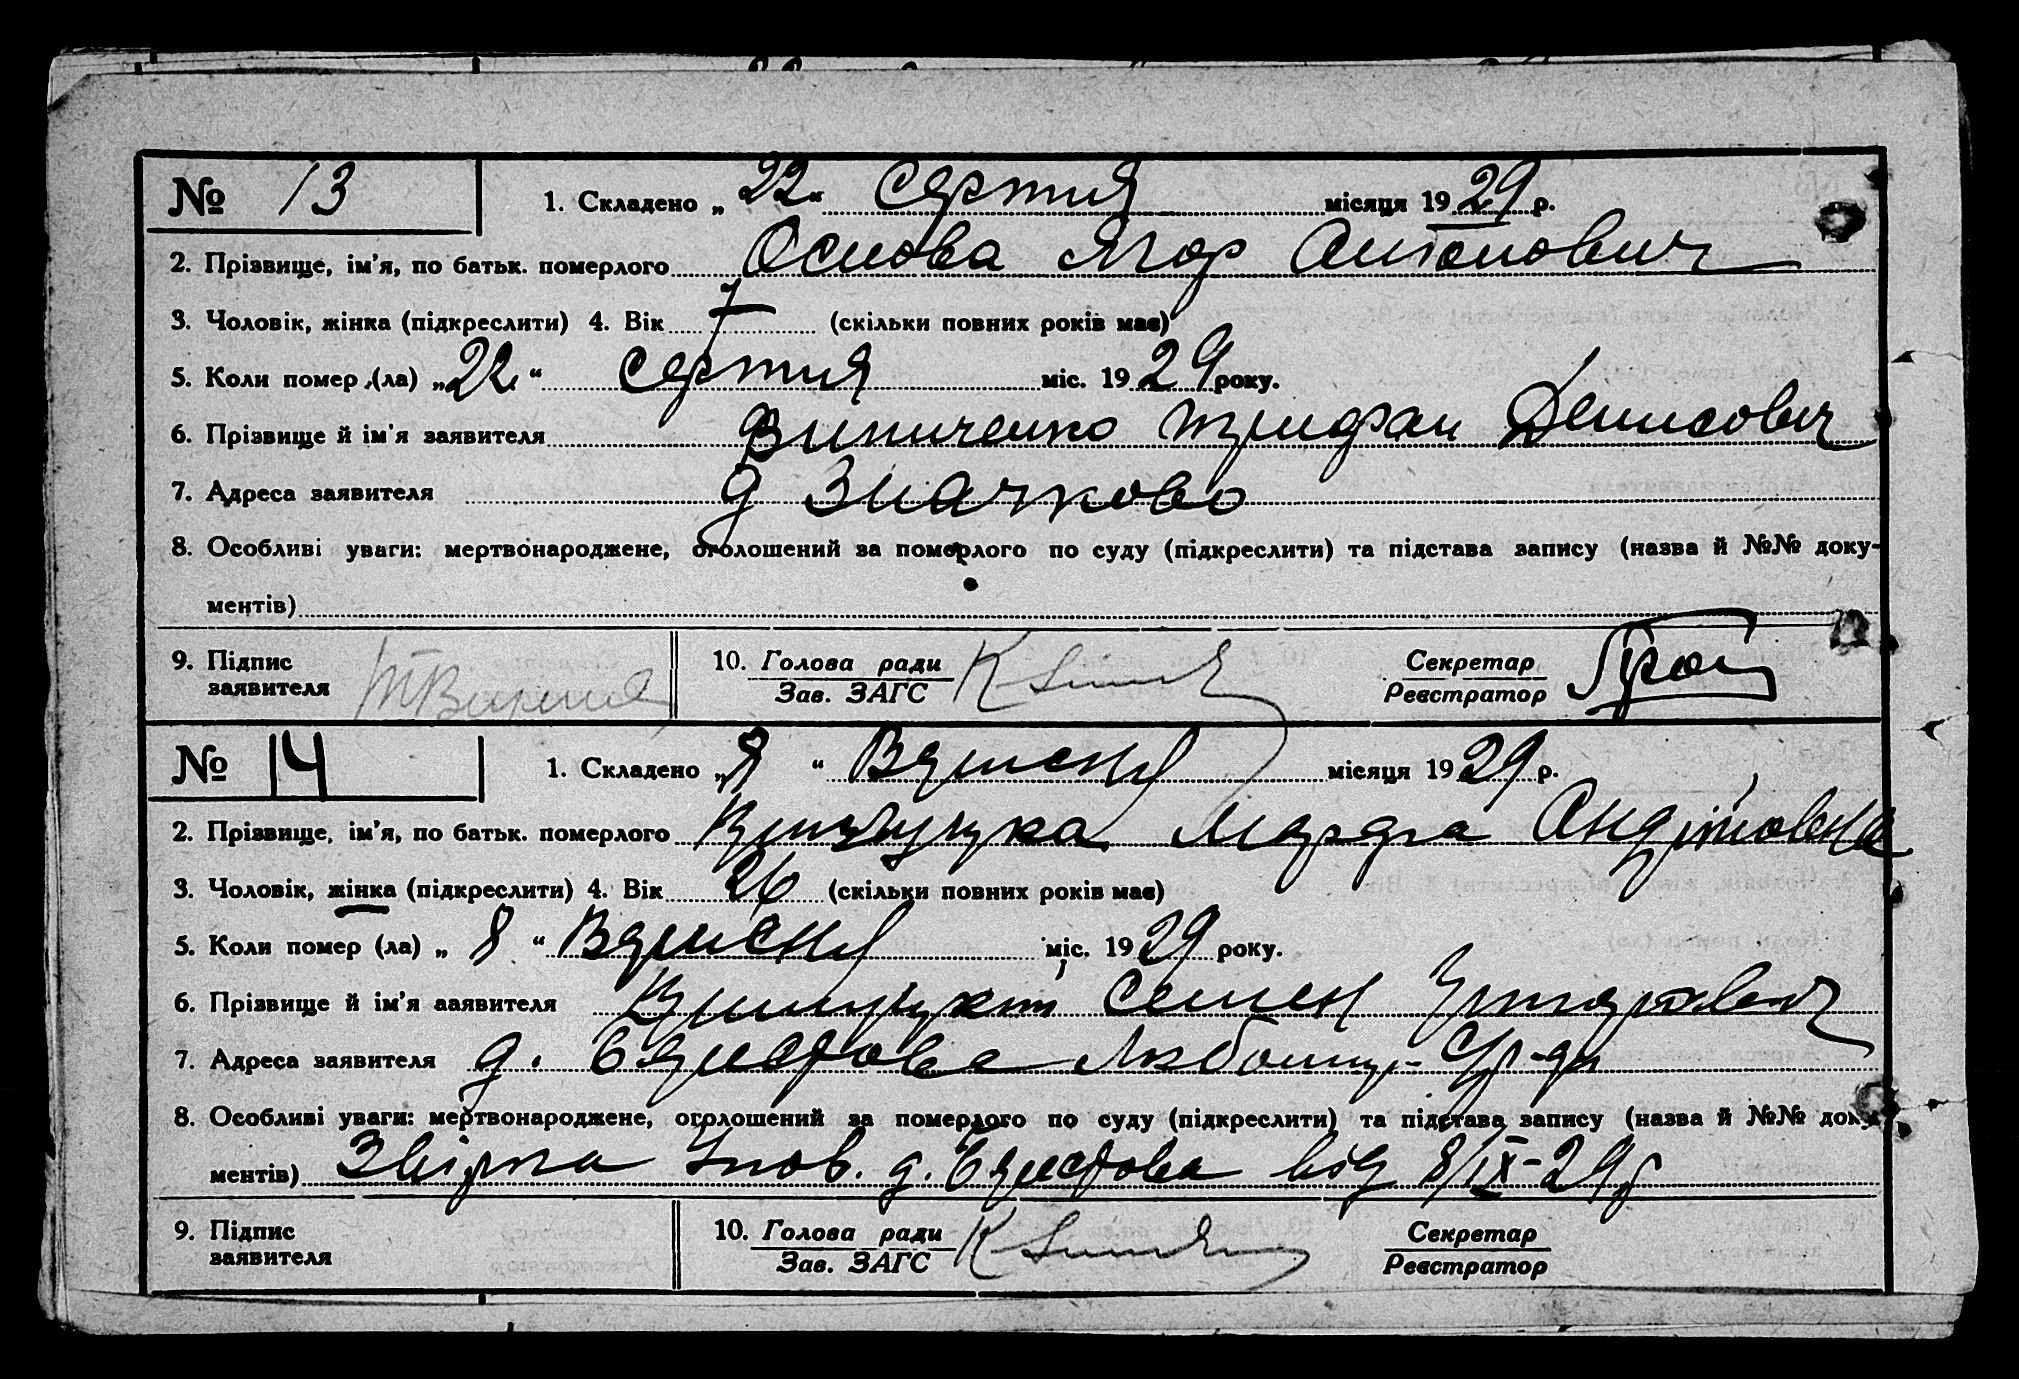 № 13
1. Складено „22“ Серпня місяця 1929 р.
2. Прізвище, ім’я, по батьк. померлого Осипова Ягор Антонович
3. Чоловік, жінка (підкреслити) 4. Вік 7 (скільки повних років має)
5. Коли помер (ла) „22“ Серпня міс. 1929 року.
6. Прізвище й ім’я заявителя Виниченко Денисович
7. Адреса заявителя д Значково
8. Особливі уваги: мертвонароджене, оголошений за померлого по суду (підкреслити) та підстава запису (назва й №№ доку-
ментів)
9. Підпис заявителя
10. Голова ради
Зав. ЗАГС
Секретар
Реєстратор
№ 14
1. Складено „8“ Вересня місяця 1929 р.
2. Прізвище, ім’я, по батьк. померлого Марфа
3. Чоловік, жінка (підкреслити) 4. Вік 26 (скільки повних років має)
5. Коли помер (ла) „8“ Вересня міс. 1929 року.
6. Прізвище й ім’я заявителя Семен
7. Адреса заявителя д.
8. Особливі уваги: мертвонароджене, оголошений за померлого по суду (підкреслити) та підстава запису (назва й №№ доку-
ментів) д. від 8/IX-29р
9. Підпис заявителя
10. Голова ради
Зав. ЗАГС
Секретар
Реєстратор